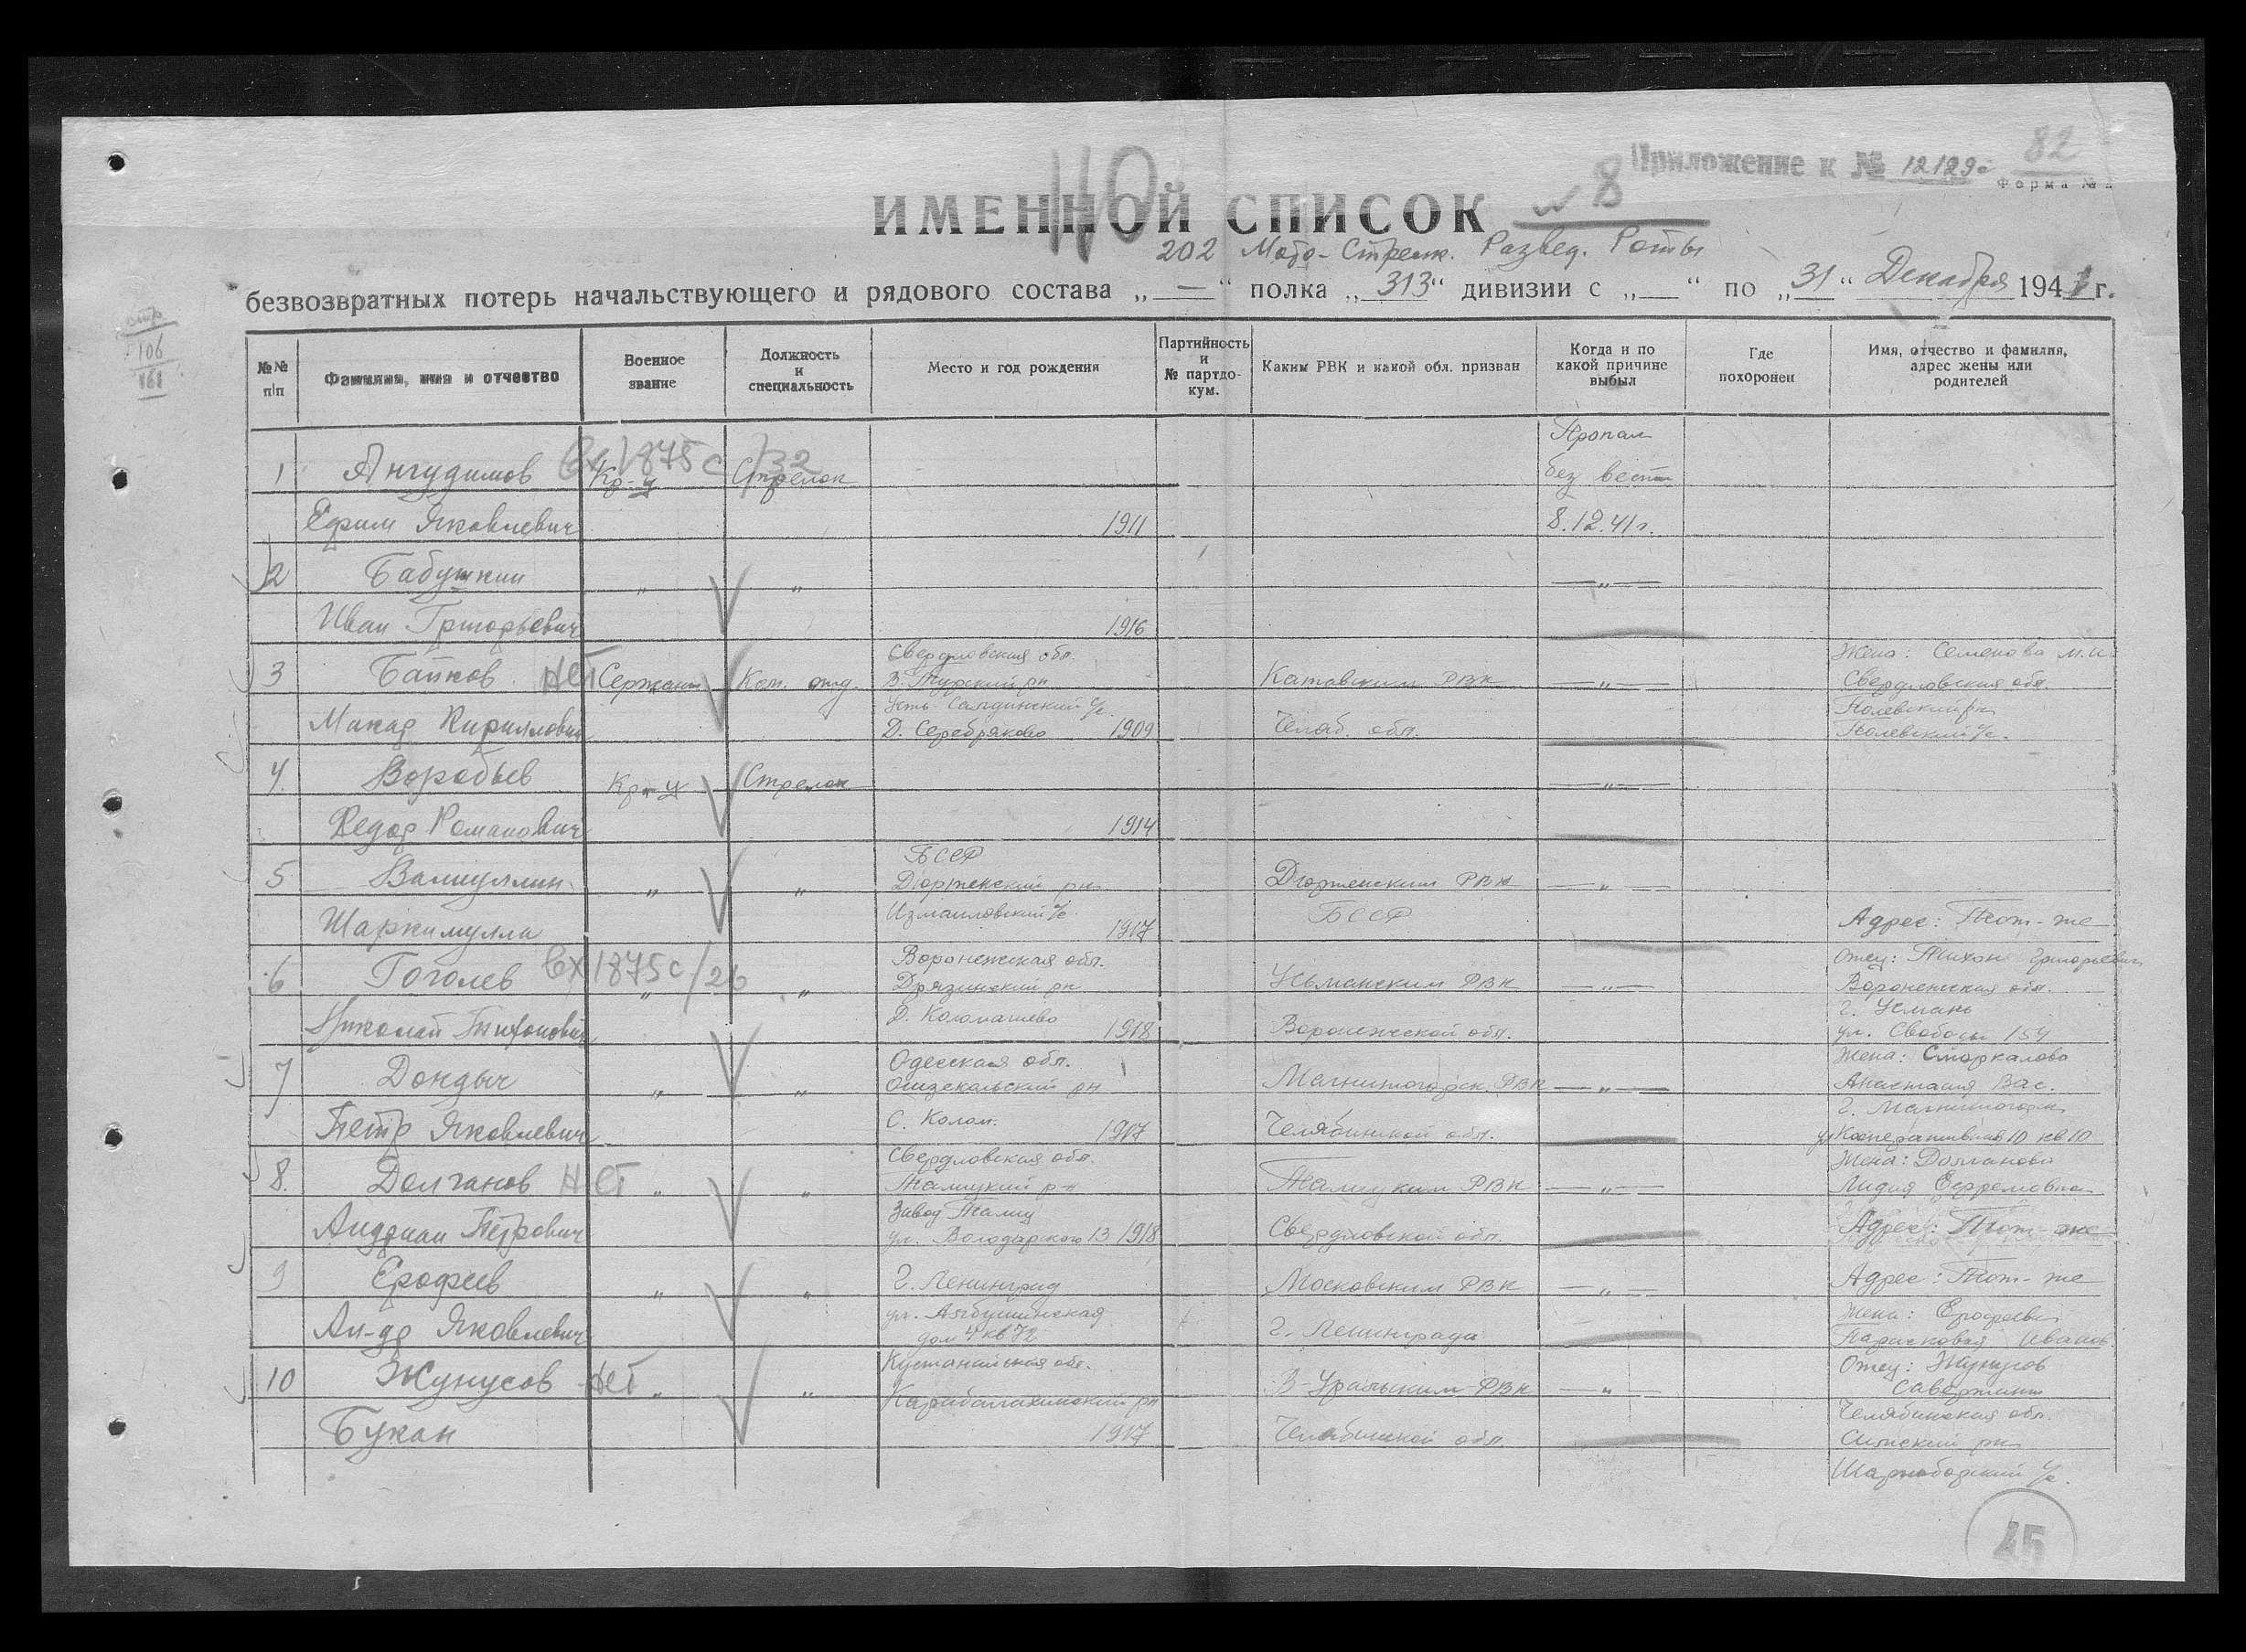 82
Приложение к № 12129с
Форма № 2
НО
ИМЕННОЙ СПИСОК № 8
202 Мото-Стрелк. Развед. Роты
безвозвратных потерь начальствующего и рядового состава „ — “ полка „ 313 “ дивизии с „ “ по „ 31 “ Декабря 1941 г.
стр
106
161
№№ п/п
Фамилия, имя и отчество
Военное звание
Должность и специальность
Место и год рождения
Партийность и № партдокум.
Каким РВК и какой обл. призван
Когда и по какой причине выбыл
Где похоронен
Имя, отчество и фамилия, адрес жены или родителей
1 Ангудимов Вх 1875с/32 Кр-ц Стрелок Пропал без вести
Ефим Яковлевич 1911 8.12.41г.
2 Бабушкин „ „ — „ —
Иван Григорьевич 1916
3 Байков Нет Сержант Ком. отд. Свердловская обл. В. Турский рн Катавским РВК — „ — Жена: Семенова М.И. Свердловская обл.
Макар Кириллович Усть Салдинский с/с. Д. Серебряково 1909 Челяб. обл. Полевский рн Полевский с/с.
4. Воробьев Кр-ц Стрелок — „ —
Федор Романович 1914
5 Валиуллин „ „ БССР Дюртюнский рн Дюртюнским РВК — „ —
Шаркимулла Измаиловский с/с. 1917 БССР Адрес: Тот-же
6 Гоголев Вх 1875с/26 „ „ Воронежская обл. Дрязинский рн Усманским РВК — „ — Отец: Тихон Григорьевич Воронежская обл.
Николай Тихонович 1918 Воронежской обл. г. Усмань ул. Свободы 159
7 Дондыч „ „ Одесская обл. Магнитогорск. РВК — „ — Жена: Анастасия Вас.
Петр Яковлевич С. Колом. 1917 Челябинской обл. г. Магнитогорск ул Кооперативная 10 кв 10
8. Долганов Нет „ „ Свердловская обл. Талицкий р-н Талицким РВК — „ — Жена: Долганова Лидия Ефремовна
Андриан Петрович Завод Талиц ул. Володарского 13 1918 Свердловской обл. Адрес: Тот-же
9 Ерофеев „ „ г. Ленинград Московским РВК — „ — Адрес: Тот-же
Ал-др Яковлевич ул. дом 4 кв 72 г. Ленинграда Жена: Ерофеева Парасковья Иванов.
10 Жунусов Нет „ „ Кустанайская обл. Карабалахинский рн З-Уральским РВК — „ — Отец: Жунусов
Букан 1917 Челябинской обл. Челябинская обл. рн
с/с.
45